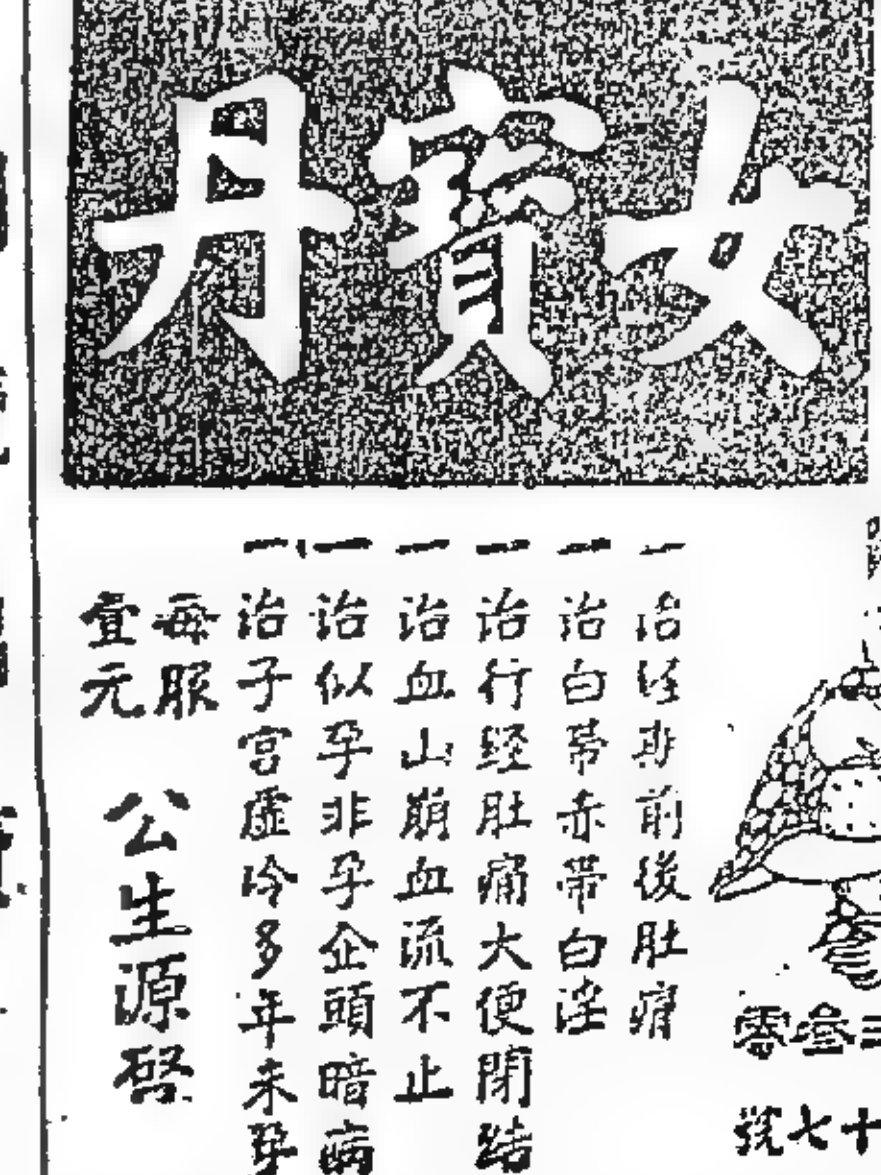 女寶丹
一治經期前後肚痛
一治白帶赤帶白淫
一治行經肚痛大便閉結
一治血山崩血流不止
一治似孕非孕企頭暗病
一治子宮虛冷多年未孕
每服
壹元
公生源啓
零叁
十七號